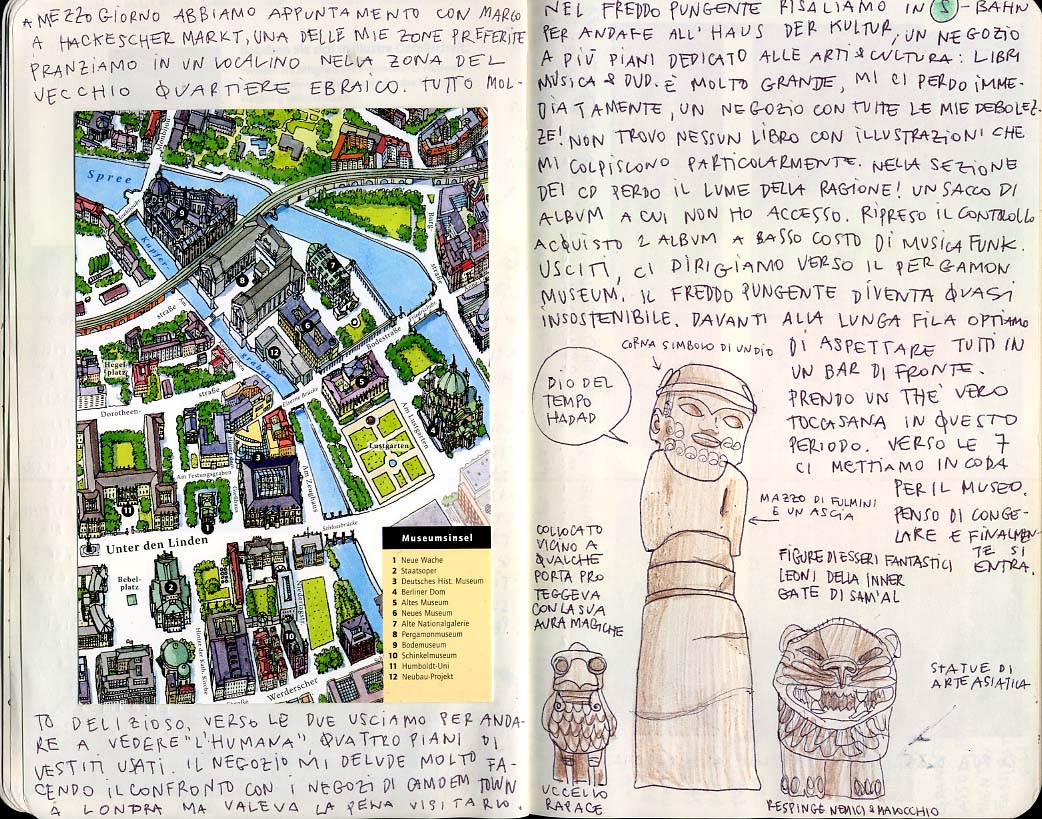 A MEZZOGIORNO ABBIAMO APPUNTAMENTO CON MARCO
A HACKESCHER MARKT, UNA DELLE MIE ZONE PREFERITE
PRANZIAMO IN UN LOCALINO NELLA ZONA DEL
VECCHIO QUARTIERE EBRAICO. TUTTO MOL-
Spree
Kupfer-
graben
Burg-
straße
straße
Hegel-
platz
straße
Dorotheen-
Eiserne Brücke
Bodestraße
Am Lustgarten
Lustgarten
Am Festungsgraben
Am Zeughaus
Schlossbrücke
Unter den Linden
Bebel-
platz
Hinter der Kath. Kirche
Werderscher
Museumsinsel
1 Neue Wache
2 Staatsoper
3 Deutsches Hist. Museum
4 Berliner Dom
5 Altes Museum
6 Neues Museum
7 Alte Nationalgalerie
8 Pergamonmuseum
9 Bodemuseum
10 Schinkelmuseum
11 Humboldt-Uni
12 Neubau-Projekt
TO DELIZIOSO. VERSO LE DUE USCIAMO PER ANDA-
RE A VEDERE "L'HUMANA", QUATTRO PIANI DI
VESTITI USATI. IL NEGOZIO MI DELUDE MOLTO FA-
CENDO IL CONFRONTO CON I NEGOZI DI CAMDEM TOWN
A LONDRA MA VALEVA LA PENA VISITARLO.
NEL FREDDO PUNGENTE RISALIAMO IN S-BAHN
PER ANDARE ALL'HAUS DER KULTUR, UN NEGOZIO
A PIÙ PIANI DEDICATO ALLE ARTI & CULTURA: LIBRI
MUSICA & DVD. È MOLTO GRANDE, MI CI PERDO IMME-
DIATAMENTE, UN NEGOZIO CON TUTTE LE MIE DEBOLEZ-
ZE! NON TROVO NESSUN LIBRO CON ILLUSTRAZIONI CHE
MI COLPISCONO PARTICOLARMENTE. NELLA SEZIONE
DEI CD PERDO IL LUME DELLA RAGIONE! UN SACCO DI
ALBUM A CUI NON HO ACCESSO. RIPRESO IL CONTROLLO
ACQUISTO 2 ALBUM A BASSO COSTO DI MUSICA FUNK.
USCITI, CI DIRIGIAMO VERSO IL PERGAMON
MUSEUM. IL FREDDO PUNGENTE DIVENTA QUASI
INSOSTENIBILE. DAVANTI ALLA LUNGA FILA OPTIAMO
DI ASPETTARE TUTTI IN
UN BAR DI FRONTE.
PRENDO UN THE' VERO
TOCCASANA IN QUESTO
PERIODO. VERSO LE 7
CI METTIAMO IN CODA
PER IL MUSEO.
PENSO DI CONGE-
LARE E FINALMEN-
TE SI
ENTRA.
CORNA SIMBOLO DI UN DIO
DIO DEL
TEMPO
HADAD
MAZZO DI FULMINI
E UN ASCIA
COLLOCATO
VICINO A
QUALCHE
PORTA PRO
TEGGEVA
CON LA SUA
AURA MAGICHE
FIGURE DI ESSERI FANTASTICI
LEONI DELLA INNER
GATE DI SAM'AL
STATUE DI
ARTE ASIATICA
UCCELLO
RAPACE
RESPINGE NEMICI & MALOCCHIO